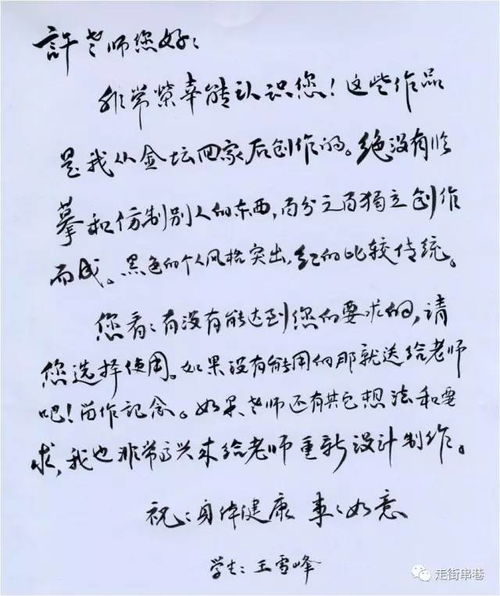 許老师您好：
非常荣幸能认识您！这些作品
是我从金坛回家后创作的。绝没有临
摹和仿制别人的东西，百分之百獨立创作
而成。黑色的个人风格突出，红的比较传统。
您看：有没有能达到您的要求的，请
您选择使用。如果没有能用的那就送给老师
吧！留作记念。如果老师还有其它想法和要
求，我也非常高兴来给老师重新设计制作。
祝：身体健康 事事如意
学生：王雪峰
走街串巷